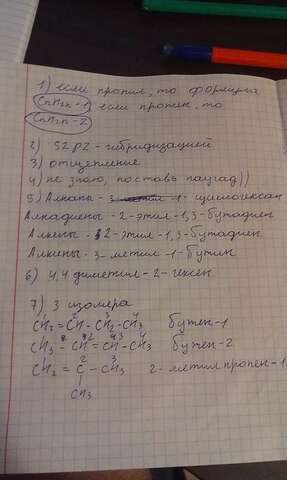 1) если пропил, то формула
CnH2n+1, если пропен, то
CnH2n-2
2) S2P2 - гибридизацией
3) отщепление
4) не знаю, поставь наугад))
5) Алканы - 3 метил - 1 - циклогексан
Алкадиены - 2 - этил - 1,3 - бутадиен
Алкены - 2 - этил - 1,3 - бутадиен
Алкены - 3 - метил - 1 - бутин
6) 4,4 диметил - 2 - гексен
7) 3 изомера
1 2 3 4
CH2 = CH - CH2 - CH3 бутен - 1
CH3 - CH = CH - CH3 бутен - 2
1 2 3
CH2 = C - CH3 2 - метилпропен - 1
CH3